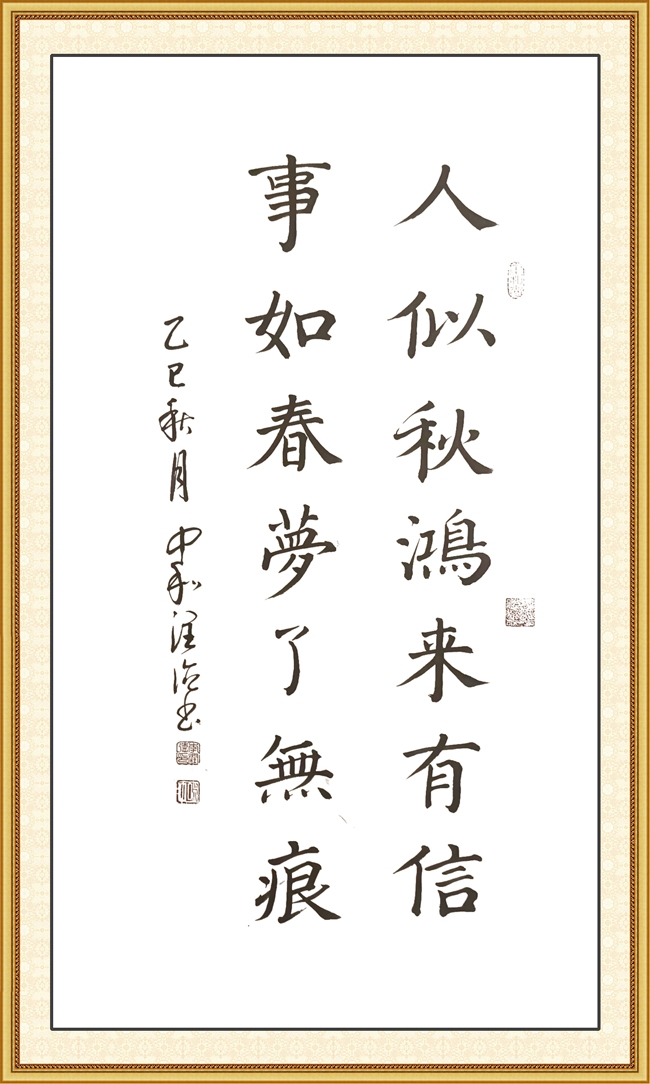 人似秋鸿来有信
事如春夢了無痕
乙巳秋月 中和 润治书